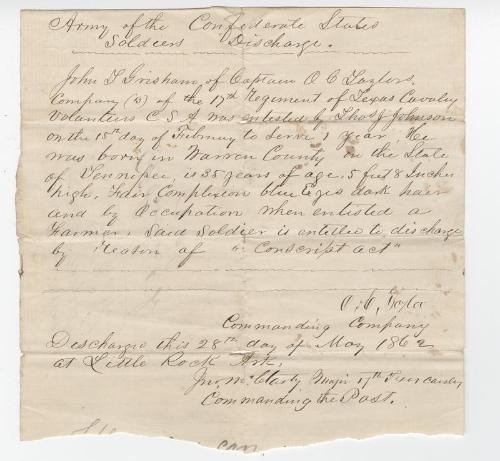 Army of the Confederate States
Soldiers Discharge.
John T Grisham of Captain O C Taylors
Company (D) of the 17th Regiment of Texas Cavalry
Volunteers C S A was enlested by Thos J Johnson
on the 15th day of February to serve 1 year. He
was born in Warren County in the State
of Tennessee, is 35 years of age. 5 feet 8 Inches
high. Fair Complexion blue Eyes dark hair
and by Occupation when enlisted a
Farmer. Said Soldier is entitled to discharge
by Reason of "Conscript act"
O. C. Taylor
Commanding Company
Discharge this 28th day of May 1862
at Little Rock Ark.
Jno. McClarty Major 17th Texas Cavalry
Commanding the Post.